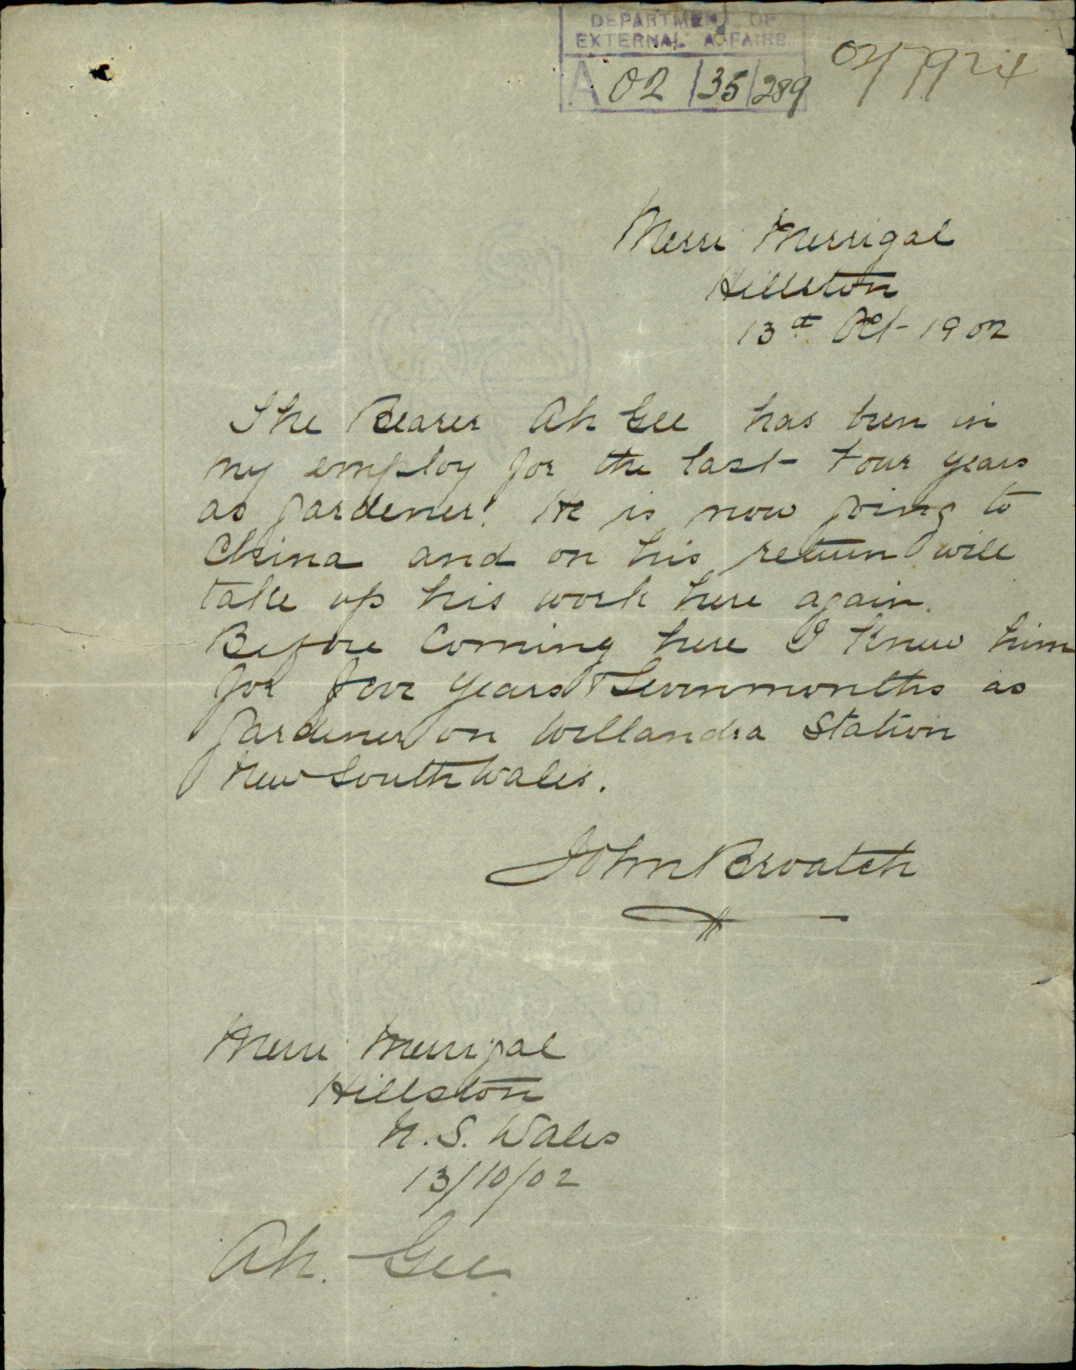 DEPARTMENT OF
EXTERNAL AFFAIRS
A 02/35/289
02/7924
Merri Merrigal
Hillston
13th Oct- 1902
The Bearer Ah Gee has been in
my employ for the last four years
as gardener. He is now going to
China and on his return will
take up his work here again.
Before Coming here I Knew him
for five years & Sevenmonths as
gardener on Willandra Station
New South Wales.
John Broatch
Merri Merrigal
Hillston
N.S. Wales
13/10/02
Ah. Gee.